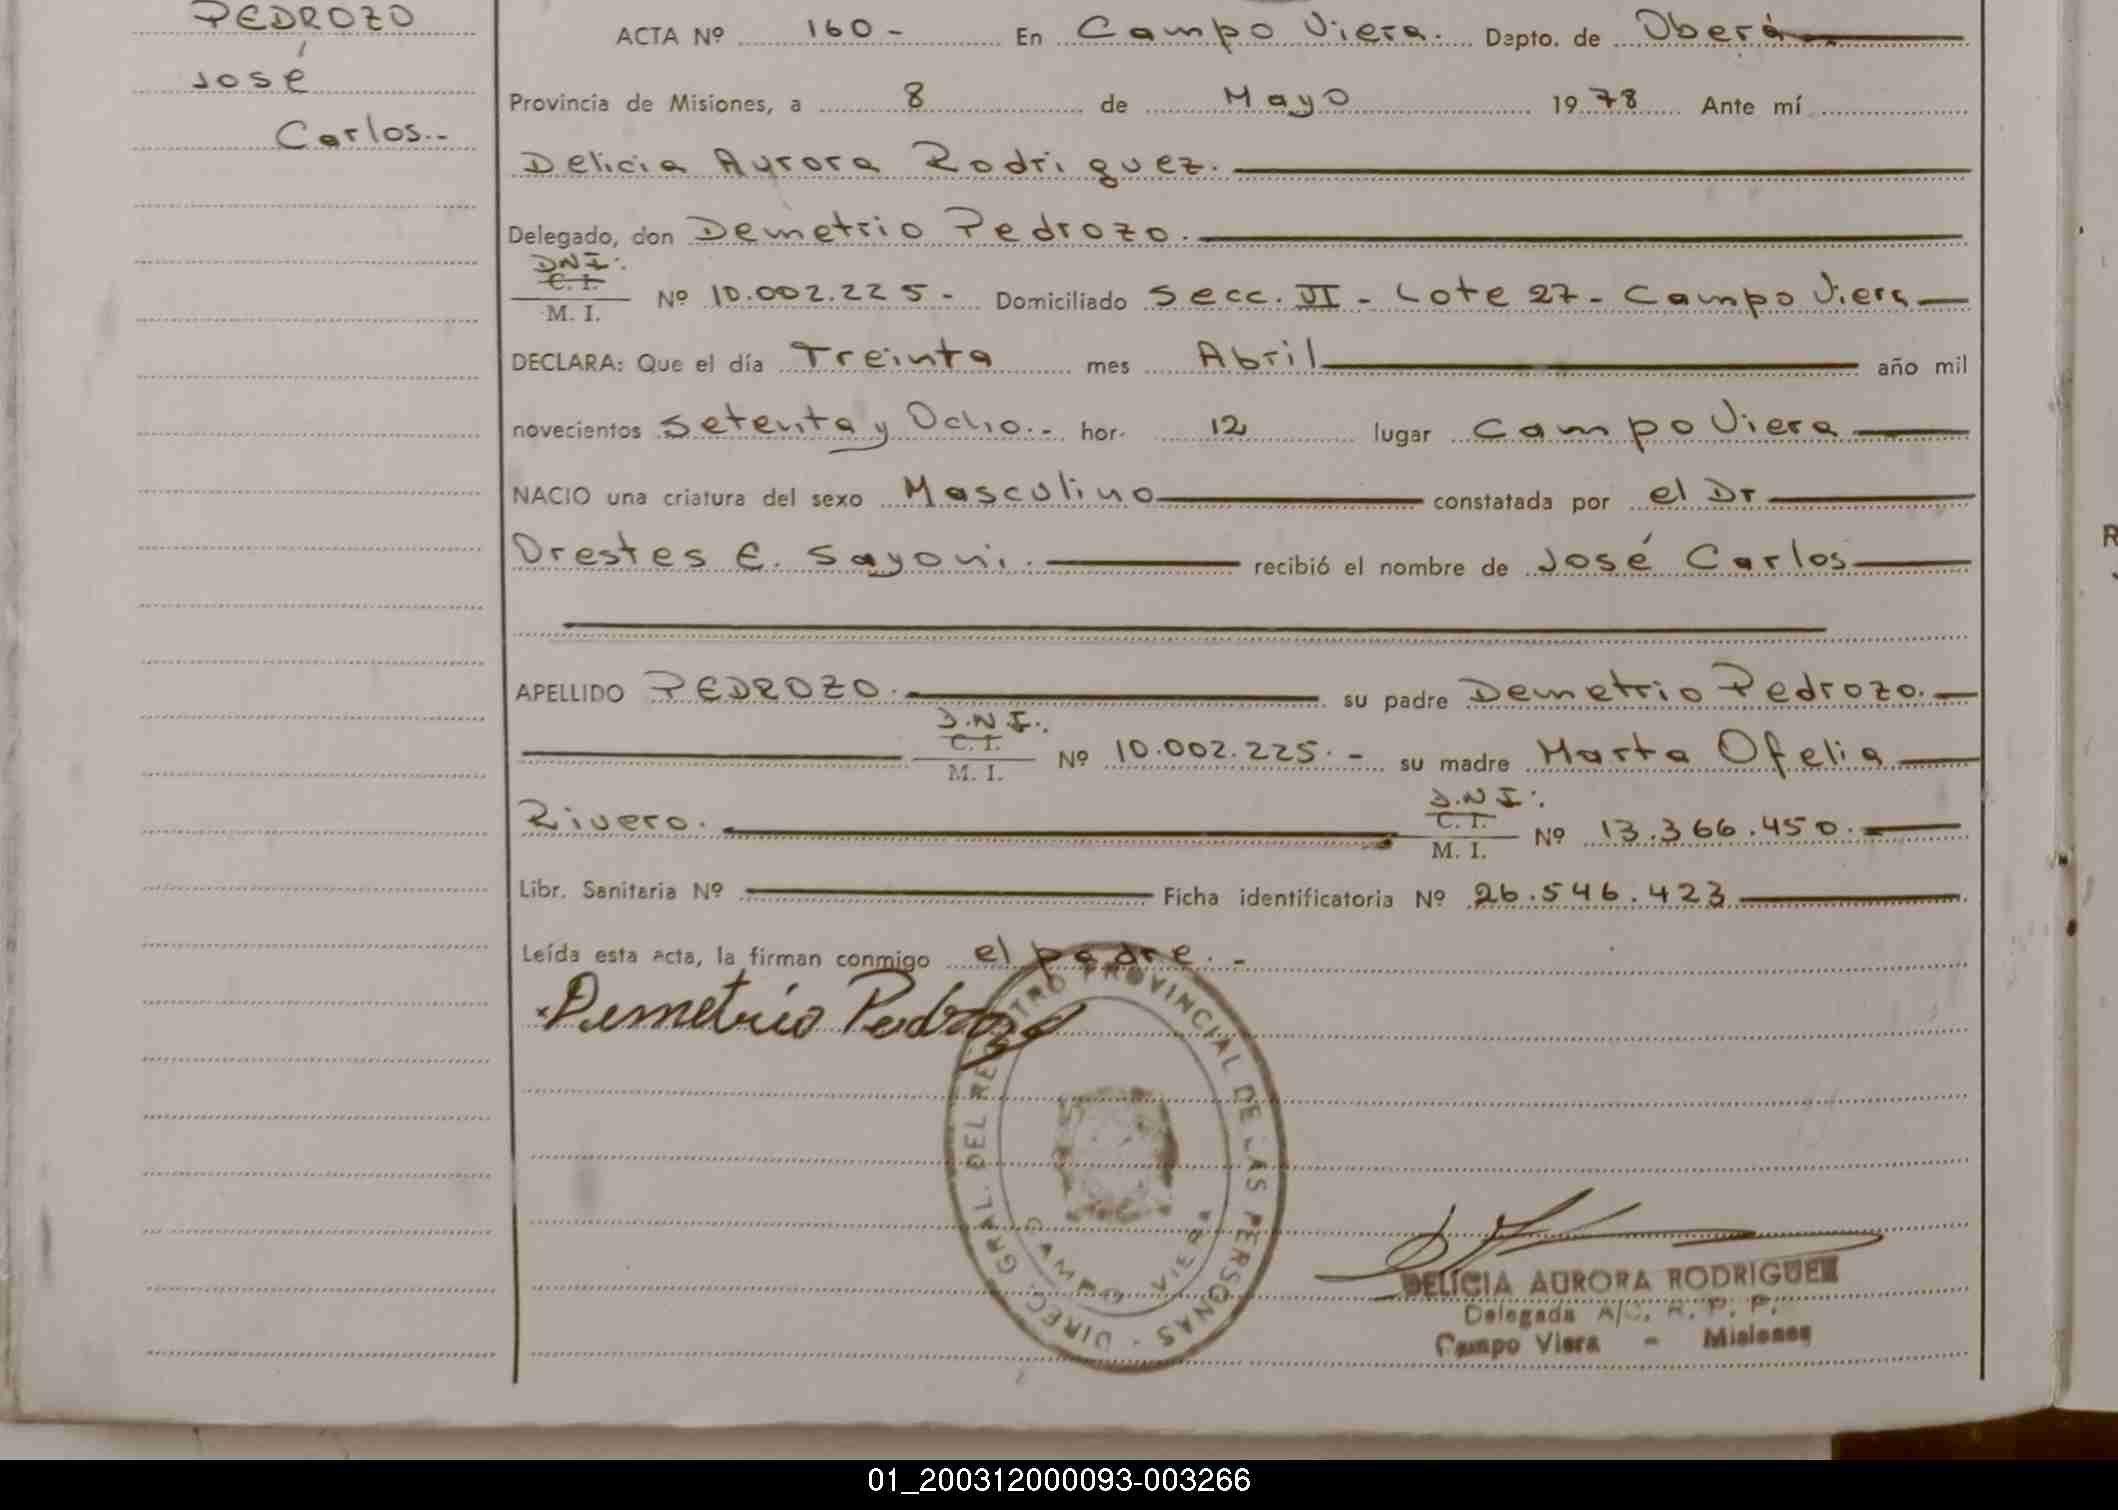 PEDROZO
José
Carlos.-
ACTA Nº 160 - En Campo Viera. Dapto. de Oberá
Provincia de Misiones, a 8 de Mayo 1978 Ante mí
Delicia Aurora Rodriguez.
Delegado, don Demetrio Pedrozo.
DNI:
C. I.
M. I.
Nº 10.002.225 - Domiciliado Secc. VI - Lote 27 - Campo Viera
DECLARA: Que el día Treinta mes Abril año mil
novecientos Setenta y Ocho.- hor. 12 lugar Campo Viera
NACIO una criatura del sexo Masculino constatada por el Dr
Orestes E. Sayoni. recibió el nombre de José Carlos
APELLIDO PEDROZO. su padre Demetrio Pedrozo.
D.N.I.
C. I.
M. I.
Nº 10.002.225. - su madre Marta Ofelia
Rivero.
D.N.I.
C. I.
M. I.
Nº 13.366.450.
Libr. Sanitaria Nº Ficha identificatoria Nº 26.546.423
Leída esta acta, la firman conmigo el padre. -
Demetrio Pedrozo
DIREC. GRAL. DEL REGISTRO PROVINCIAL DE LAS PERSONAS
CAMPO VIERA
DELICIA AURORA RODRIGUEZ
Delegada A/C. R. P. P.
Campo Viera - Misiones
R
01_200312000093-003266